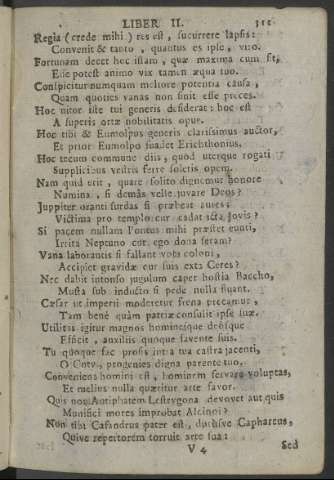 LIBER II. 311
Regia (crede mihi) res est, succurrere lapsis:
Convenit & tanto, quantus es ipse, viro.
Fortunam decet hoc istam, quæ maxima cum sit,
Esse potest animo vix tamen æqua tuo.
Conspicitur numquam meliore potentia causa,
Quam quoties vanas non sinit esse preces.
Hoc nitor iste tui generis desiderat: hoc est
A superis ortæ nobilitatis opus.
Hoc tibi & Eumolpus generis clarissimus auctor,
Et prior Eumolpo suadet Erichthonius.
Hoc tecum commune diis, quod uterque rogati
Supplicibus vestris ferre soletis opem.
Nam quid erit, quare solito dignemur honore
Numina, si demas velle juvare Deos?
Juppiter oranti surdas si præbeat aures;
Victima pro templo cur cadat icta Jovis?
Si pacem nullam Pontus mihi præstet eunti,
Irrita Neptuno cur ego dona feram?
Vana laborantis si fallant vota coloni,
Accipiet gravidæ cur suis exta Ceres?
Nec dabit intonso jugulum caper hostia Baccho,
Musta sub inducto si pede nulla fluant.
Cæsar ut imperii moderetur frena precamur,
Tam bene quàm patriæ consulit ipse suæ.
Utilitas igitur magnos hominesque deosque
Efficit, auxiliis quoque favente suis.
Tu quoque fac prosis intra tua castra jacenti,
O Coty, progenies digna parente tuo.
Conveniens homini est, hominem servare voluptas,
Et melius nulla quæritur arte favor.
Quis non Antiphatem Læstrygona devovet aut quis
Munifici mores improbat Alcinoi?
Non tibi Cassandrus pater est, Caphareus,
Quive repertorem torruit arte sua:
V 4 Sed